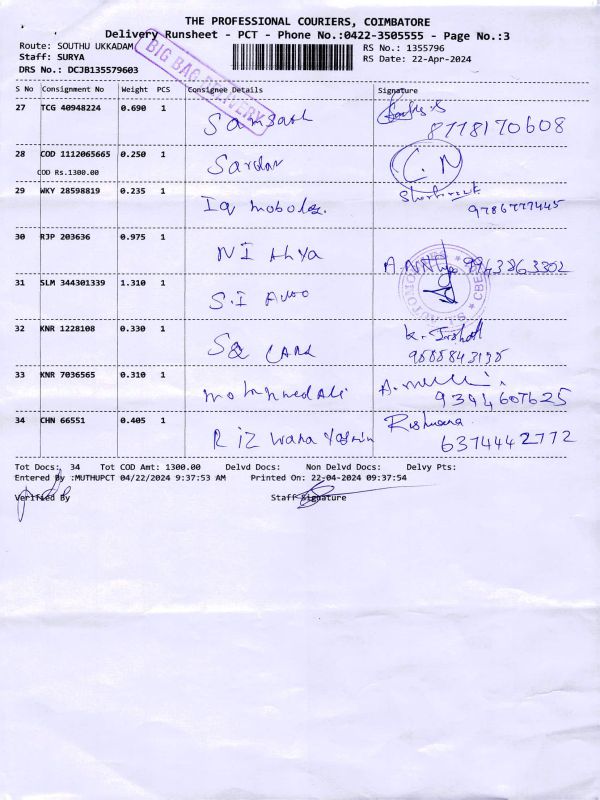 THE PROFESSIONAL COURIERS, COIMBATORE
Delivery Runsheet - PCT - Phone No.:0422-3505555 - Page No.:3
Route: SOUTHU UKKADAM
RS No.: 1355796
Staff: SURYA
RS Date: 22-Apr-2024
DRS No.: DCJB135579603
BIG BAG DELIVERY
S No Consignment No Weight PCS Consignee Details Signature
27 TCG 40948224 0.690 1
8778170608
28 COD 1112065665 0.250 1 Sardar C.N
COD Rs.1300.00
29 WKY 28598819 0.235 1
9786777445
30 RJP 203636 0.975 1 9943863302
31 SLM 344301339 1.310 1 S.I Auto
32 KNR 1228108 0.330 1
33 KNR 7036565 0.310 1
9394607625
34 CHN 66551 0.405 1
6374442772
Tot Docs: 34 Tot COD Amt: 1300.00 Delvd Docs: Non Delvd Docs: Delvy Pts:
Entered By :MUTHUPCT 04/22/2024 9:37:53 AM Printed On: 22-04-2024 09:37:54
Verified By Staff Signature